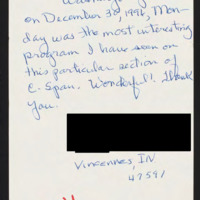 on December 30, 1996, Mon-
day was the most interesting
program I have seen on
this particular section of
C-Span. Wonderful! Thank
You.
Vincennes, IN
47591